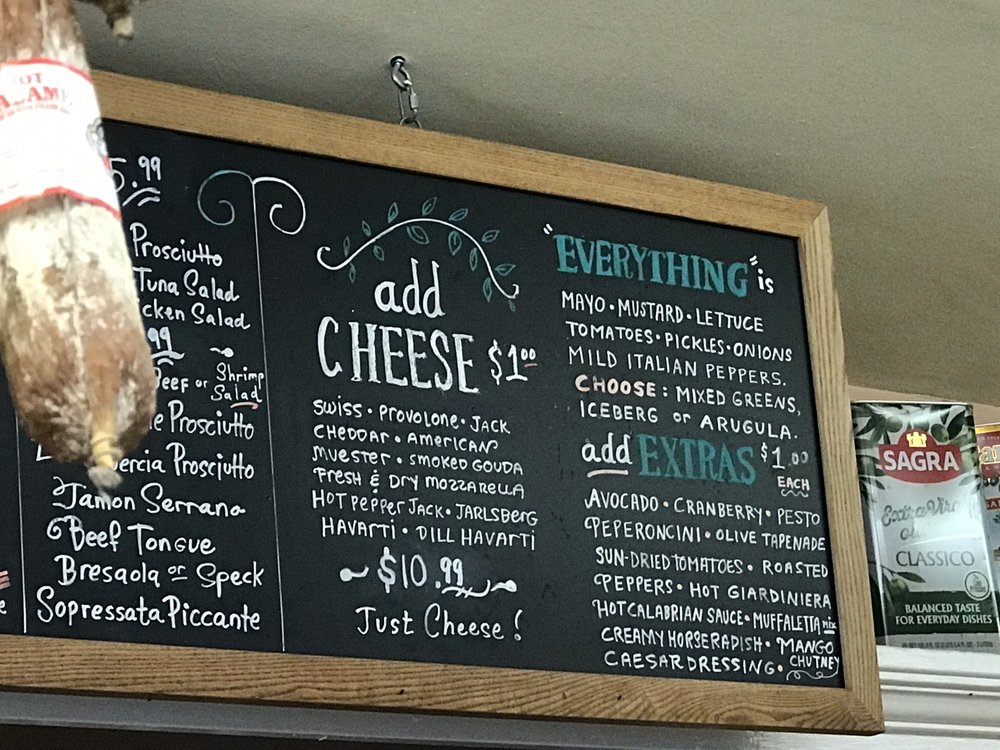 5.99
Prosciutto
Tuna Salad
cken Salad
99
Beef or Shrimp Salad
Prosciutto
Prosciutto
Jamon Serrano
Beef Tongue
Bresaola or Speck
Sopressata Piccante
add
CHEESE $1.00
SWISS • PROVOLONE • JACK
CHEDDAR • AMERICAN
MUESTER • SMOKED GOUDA
FRESH & DRY MOZZARELLA
HOT PEPPER JACK • JARLSBERG
HAVARTI • DILL HAVARTI
$10.99
Just Cheese!
"EVERYTHING" is
MAYO • MUSTARD • LETTUCE
TOMATOES • PICKLES • ONIONS
MILD ITALIAN PEPPERS.
CHOOSE: MIXED GREENS,
ICEBERG or ARUGULA.
add EXTRAS $1.00 EACH
AVOCADO • CRANBERRY • PESTO
PEPERONCINI • OLIVE TAPENADE
SUN-DRIED TOMATOES • ROASTED
PEPPERS • HOT GIARDINIERA
HOT CALABRIAN SAUCE • MUFFALETTA mix
CREAMY HORSERADISH • MANGO
CAESAR DRESSING • CHUTNEY
SAGRA
Extra Virgin
CLASSICO
BALANCED TASTE
FOR EVERYDAY DISHES